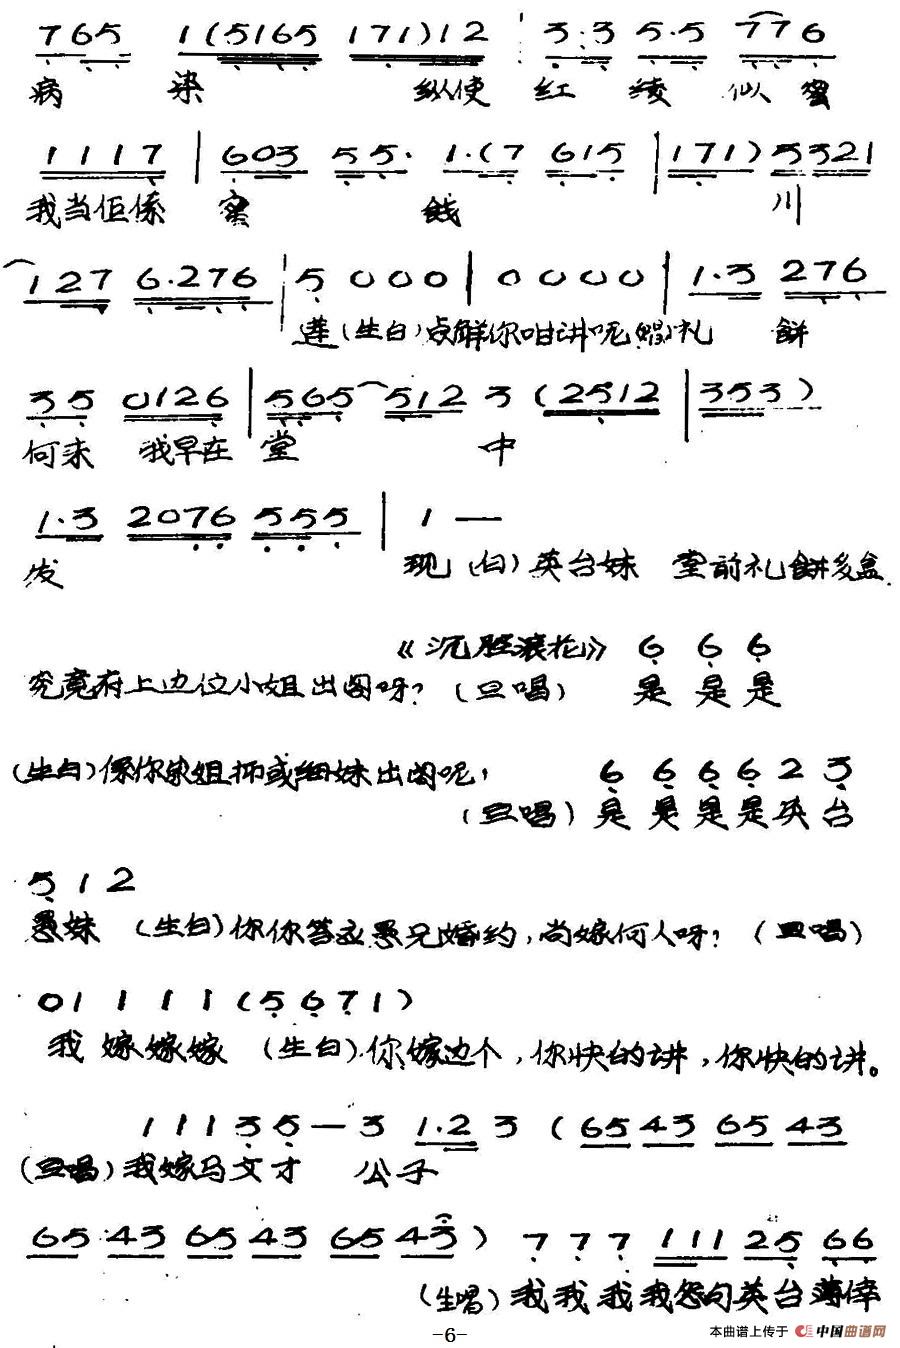 765 1(5165 171)12 3·3 5·5 776
病 染 纵使 红 绫 似 蜜
1117 | 603 55· 1·(7 615 | 171) 5321
我当佢係 蜜 饯 川
127 6·276 | 5 0 0 0 | 0 0 0 0 | 1·3 276
莲(生白)点解你咁讲呢(唱)礼 餅
35 0126 | 565 512 3 (2512 | 353)
何来 我早在 堂 中
1·3 2076 555 | 1 —
发 现 (白)英台妹 堂前礼餅多盒
《沉腔滚花》 6 6 6
究竟府上边位小姐出阁呀?(旦唱) 是 是 是
(生白)係你家姐抑或细妹出阁呢, 6 6 6 6 2 3
(旦唱)是 是 是 是 英 台
5 1 2
愚妹 (生白)你你答应愚兄婚约,尚嫁何人呀?(旦唱)
0 1 1 1 1 (5 6 7 1)
我 嫁嫁嫁 (生白)你嫁边个,你快的讲,你快的讲。
1 1 1 3 5 — 3 1·2 3 (65 43 65 43
(旦唱)我嫁马文才 公子
65 43 65 43 65 43) 7 7 7 111 25 66
(生唱)我我我我怨句英台薄倖
-6-
本曲谱上传于 中国曲谱网